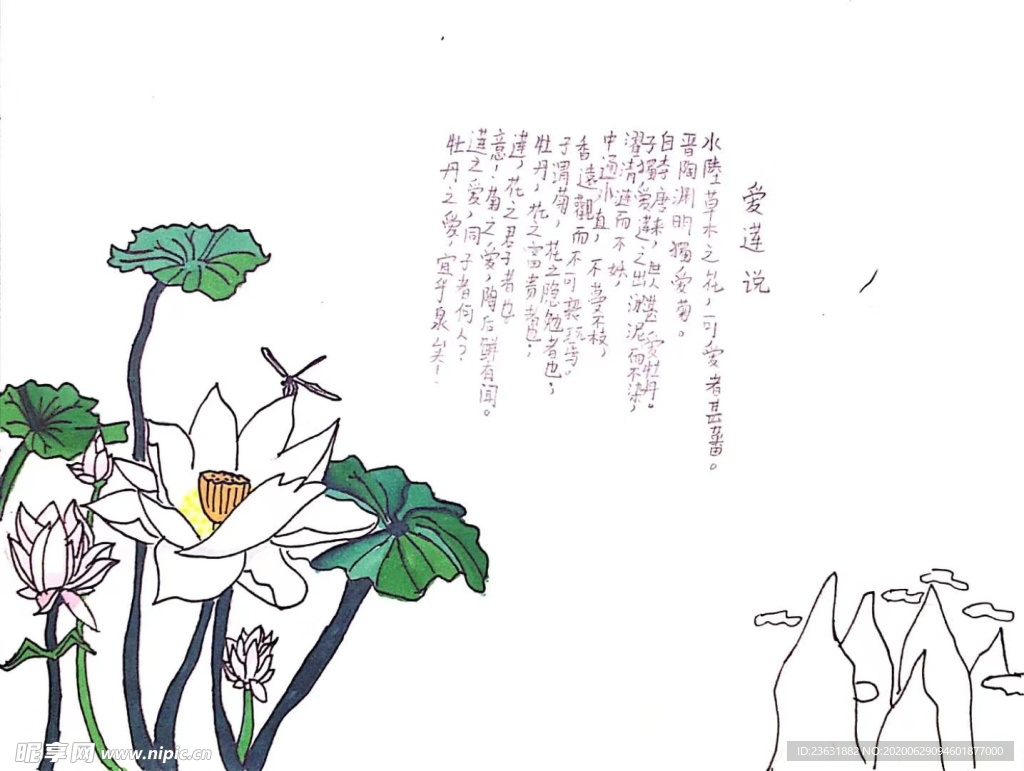 爱莲说
水陸草木之花，可爱者甚蕃。
晋陶渊明獨爱菊。
自李唐来，世人甚爱牡丹。
予獨爱莲之出淤泥而不染，
濯清涟而不妖，
中通外直，不蔓不枝，
香遠
觀而不可亵玩焉。
予谓菊，花之隐
者也；
牡丹，花之富贵者也；
莲，花之君子者也。
意！菊之爱，陶后鲜有闻。
莲之爱，同予者何人？
牡丹之爱，宜乎
昵享网 www.nipic.cn
ID:23631882 NO:20200629094601877000